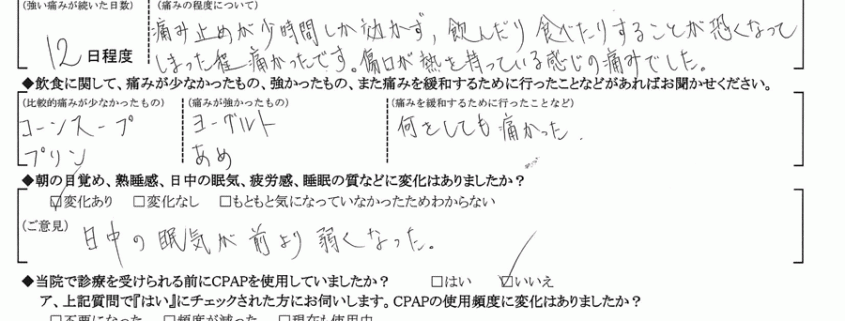 (強い痛みが続いた日数) (痛みの程度について)
12 日程度
痛み止めが少時間しか効かず,飲んだり食べたりすることが恐くなって
しまった程痛かったです。傷口が熱を持っている感じの痛みでした。
◆飲食に関して、痛みが少なかったもの、強かったもの、また痛みを緩和するために行ったことなどがあればお聞かせください。
(比較的痛みが少なかったもの) (痛みが強かったもの) (痛みを緩和するために行ったことなど)
コーンスープ ヨーグルト 何をしても痛かった.
プリン あめ
◆朝の目覚め、熟睡感、日中の眠気、疲労感、睡眠の質などに変化はありましたか?
☑変化あり □変化なし □もともと気になっていなかったためわからない
(ご意見) 日中の眠気が前より弱くなった。
◆当院で診療を受けられる前にCPAPを使用していましたか? □はい ☑いいえ
ア、上記質問で『はい』にチェックされた方にお伺いします。CPAPの使用頻度に変化はありましたか?
□不要になった □頻度が減った □現在も使用中